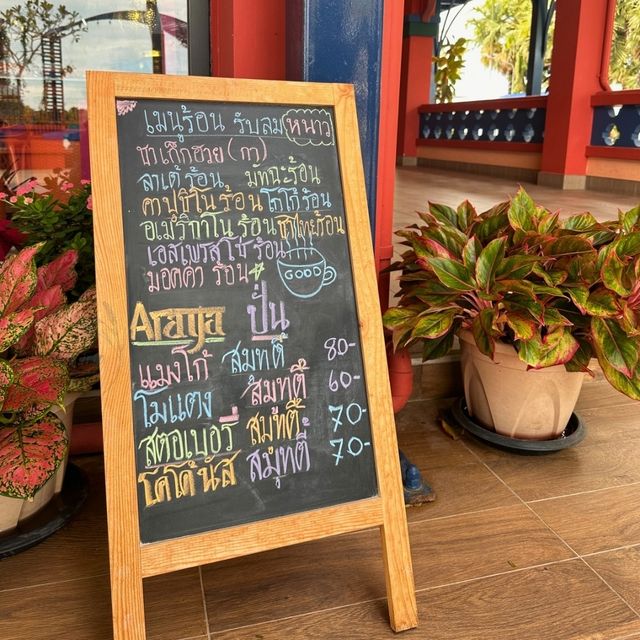 เมนูร้อน รับลมหนาว
ชาเก๊กฮวย (กา)
ลาเต้ร้อน มัทฉะร้อน
คาปูชิโนร้อน โกโก้ร้อน
อเมริกาโนร้อน ชาไทยร้อน
เอสเพรสโซ่ร้อน
มอคค่าร้อน
GOOD
Araya ปั่น
แมงโก้ สมูทตี้ 80-
โมแตง สมูทตี้ 60-
สตอเบอรี่ สมูทตี้ 70-
โคโค่นัส สมูทตี้ 70-